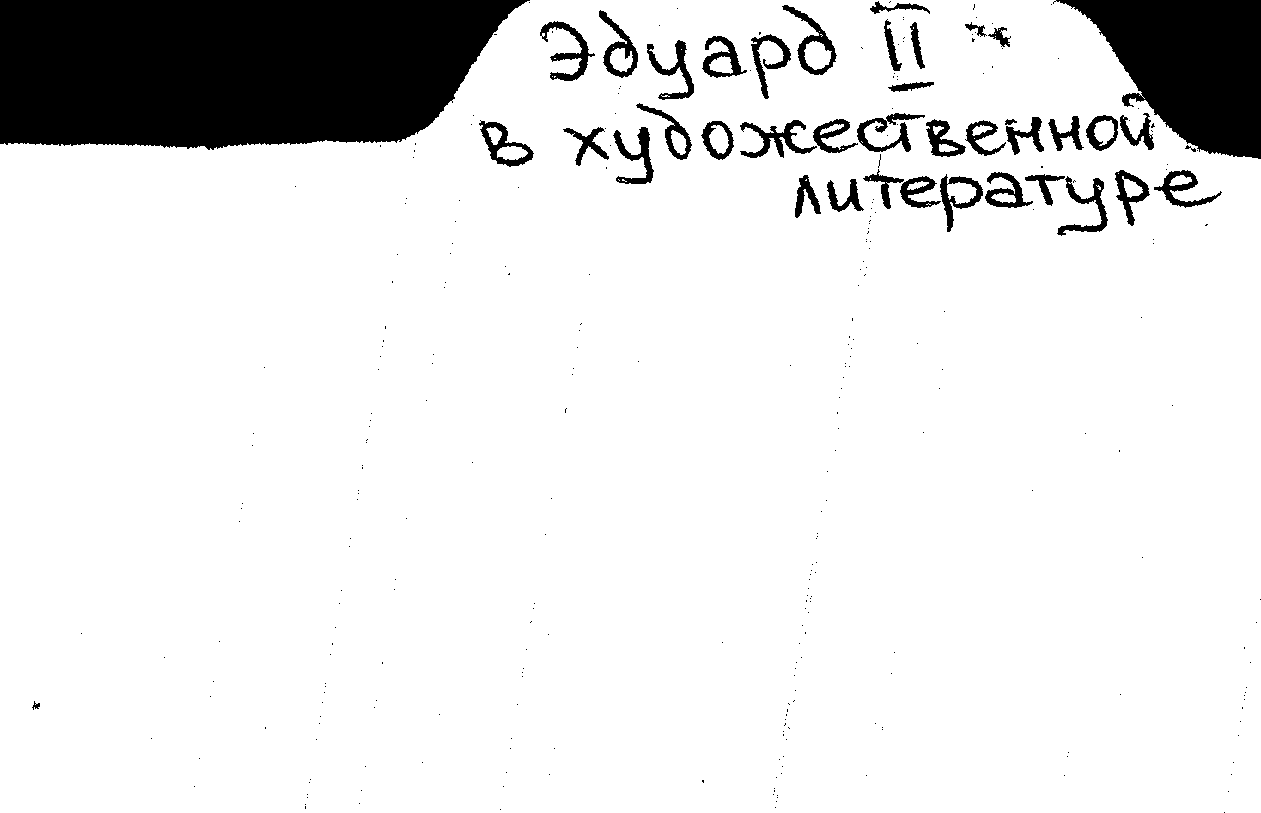 Эдуард II
в художественной
литературе